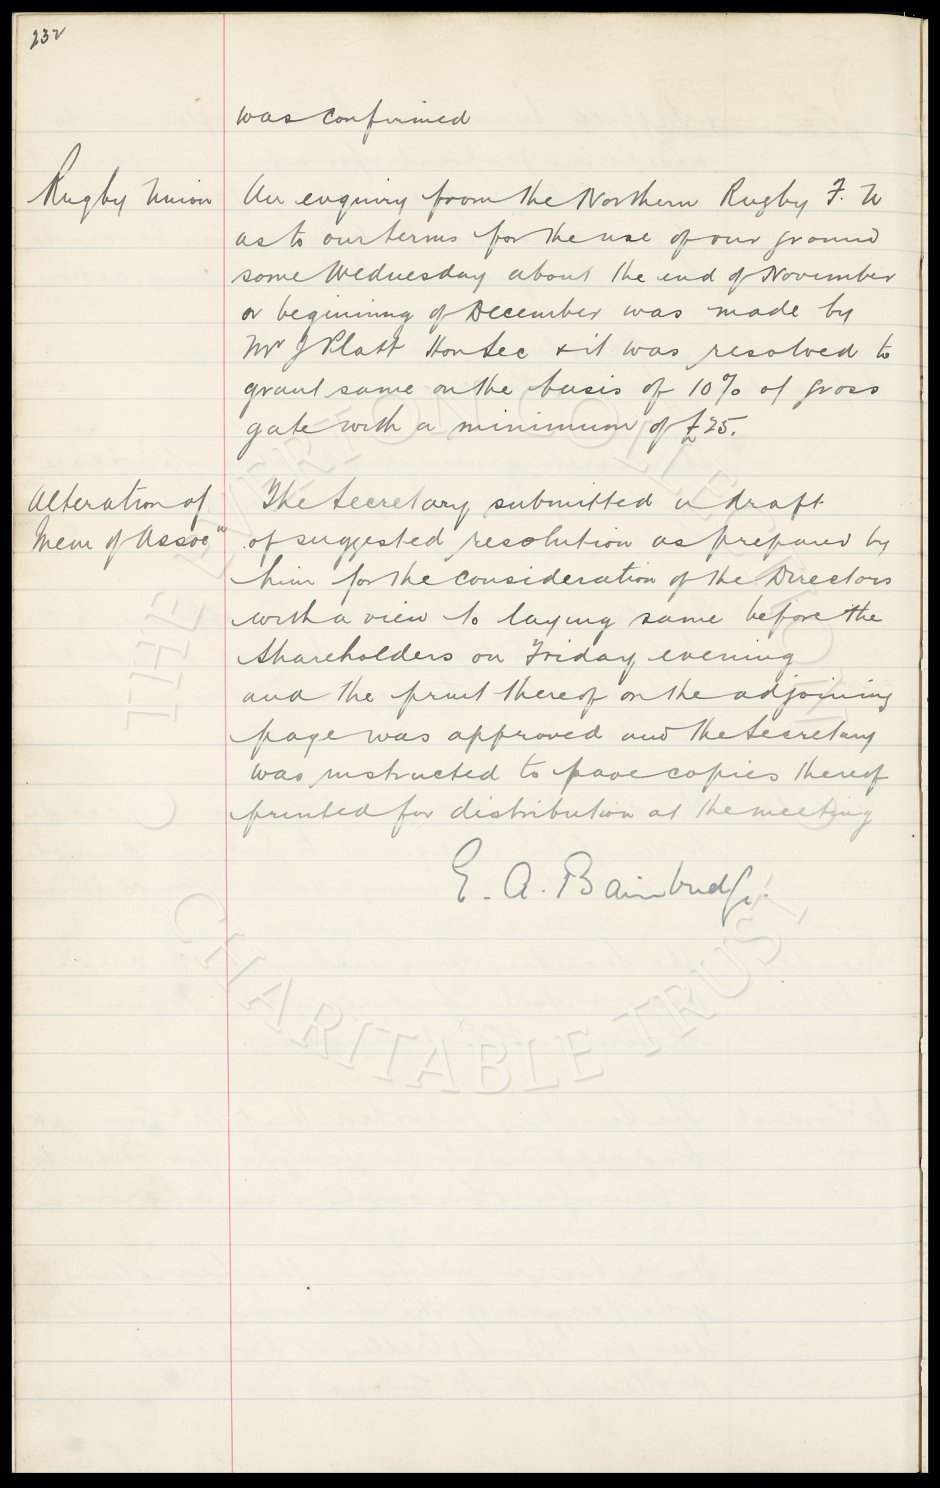 232
was confirmed
Rugby Union
An enquiry from the Northern Rugby F. U
as to our terms for the use of our ground
some Wednesday about the end of November
or beginning of December was made by
Mr J Platt Hon Sec & it was resolved to
grant same on the basis of 10% of gross
gate with a minimum of £25.
Alteration of
Mem of Assocn
The Secretary submitted a draft
of suggested resolution as prepared by
him for the consideration of the Directors
with a view to laying same before the
Shareholders on Friday evening
and the print thereof on the adjoining
page was approved and the Secretary
was instructed to have copies thereof
printed for distribution at the meeting
E. A. Bainbridge.
© THE EVERTON COLLECTION
CHARITABLE TRUST